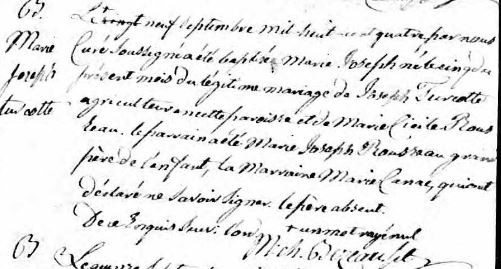 B.
Marie
Joseph
turcotte
Le vingt neuf Septembre mil huit cent quatre par nous
Curé Soussigné a été baptisé Marie Joseph né le cinq du
présent mois du légitime mariage de Joseph Turcotte
agriculteur en cette paroisse et de Marie Cécile Rous
seau. le parrain a été Marie Joseph Rousseau grand
père de l'enfant, la Marraine Marie qui ont
déclaré ne savoir signer. le père absent.
De ce Enquis Suiv. l'ord + un mot rayé nul
Mch.
B Le quinze